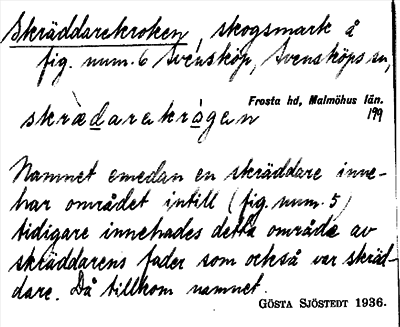 Skräddarekroken, skogsmark å
fig. num. 6 Svensköp, Svensköps sn,
Frosta hd, Malmöhus län.
199
skrædarekrógen
Namnet emedan en skräddare inne-
har området intill (fig. num. 5)
tidigare innehades detta område av
skräddarens fader som också var skräd-
dare. Då tillkom namnet.
GÖSTA SJÖSTEDT 1936.